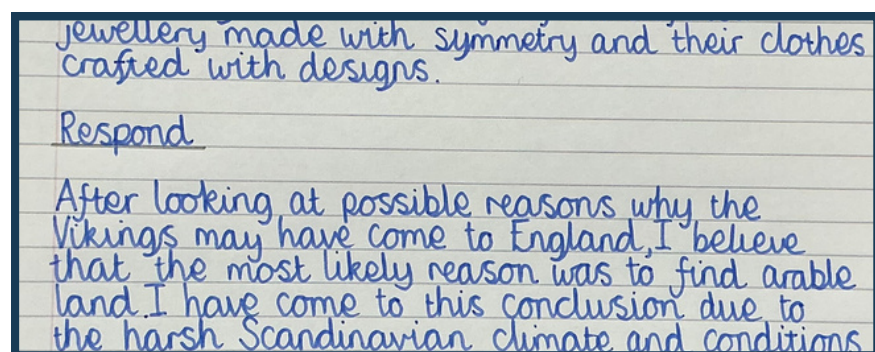 jewellery made with symmetry and their clothes
crafted with designs.
Respond
After looking at possible reasons why the
Vikings may have come to England, I believe
that the most likely reason was to find arable
land. I have come to this conclusion due to
the harsh Scandinavian climate and conditions